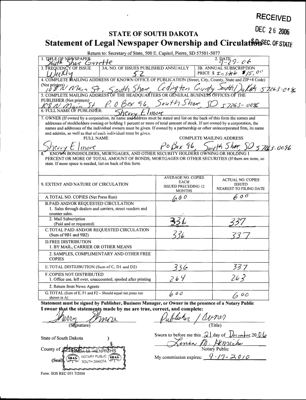 RECEIVED
DEC 26 2006
SEC. OF STATE
STATE OF SOUTH DAKOTA
Statement of Legal Newspaper Ownership and Circulation
Return to: Secretary of State, 500 E. Capitol, Pierre, SD 57501-5077
1. TITLE OF NEWSPAPER
South Shore Gazette
2. DATE
3. FREQUENCY OF ISSUE
Weekly
3A. NO. OF ISSUES PUBLISHED ANNUALLY
52
3B. ANNUAL SUBSCRIPTION
PRICE
4. COMPLETE MAILING ADDRESS OF KNOWN OFFICE OF PUBLICATION (Street, City, County, State and ZIP+4 Code)
(Not printers)
South Shore Codington County South Dakota 57263-0096
5. COMPLETE MAILING ADDRESS OF THE HEADQUARTERS OR GENERAL BUSINESS OFFICES OF THE
PUBLISHER (Not printers)
P O Box 96, South Shore SD 57263-0096
6. FULL NAME OF PUBLISHER:
Sherry Elmore
7. OWNER (If owned by a corporation, its name and address must be stated and list on the back of this form the names and
addresses of stockholders owning or holding 1 percent or more of total amount of stock. If not owned by a corporation, the
names and addresses of the individual owners must be given. If owned by a partnership or other unincorporated firm, its name
and address, as well as that of each individual must be given.
FULL NAME
COMPLETE MAILING ADDRESS
Sherry Elmore
Po Box 96, South Shore SD 57263-0096
8. KNOWN BONDHOLDERS, MORTGAGES, AND OTHER SECURITY HOLDERS OWNING OR HOLDING 1
PERCENT OR MORE OF TOTAL AMOUNT OF BONDS, MORTGAGES OR OTHER SECURITIES (If there are none, so
state. If more space is needed, list on back of this form.
9. EXTENT AND NATURE OF CIRCULATION
AVERAGE NO. COPIES
EACH
ISSUED PRECEDING 12
MONTHS
ACTUAL NO. COPIES
ISSUED
NEAREST TO FILING DATE
A. TOTAL NO. COPIES (Net Press Run)
600
600
B. PAID AND/OR REQUESTED CIRCULATION
1. Sales through dealers and carriers, street vendors and
counter sales
2. Mail Subscription
(Paid and or requested)
336
337
C. TOTAL PAID AND/OR REQUESTED CIRCULATION
(Sum of 9B1 and 9B2)
336
337
D. FREE DISTRIBUTION
1. BY MAIL, CARRIER OR OTHER MEANS
2. SAMPLES, COMPLIMENTARY AND OTHER FREE
COPIES
E. TOTAL DISTRIBUTION (Sum of C, D1 and D2)
336
337
F. COPIES NOT DISTRIBUTED
1. Office use, left over, unaccounted, spoiled after printing
264
263
2. Return from News Agents
G. TOTAL (Sum of E, F1 and F2 - Should equal net press run
shown in A)
600
600
Statement must be signed by Publisher, Business Manager, or Owner in the presence of a Notary Public
I swear that the statements made by me are true, correct, and complete:
Sherry Elmore
(Signature)
Publisher / Owner
(Title)
State of South Dakota
County of
(Seal)
NOTARY PUBLIC
Sworn to before me this 21 day of December 2006
Notary Public
My commission expires: 9-17-2010